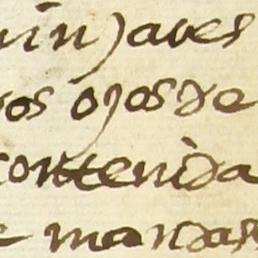 aves
os ojos de
contenida
e mandas